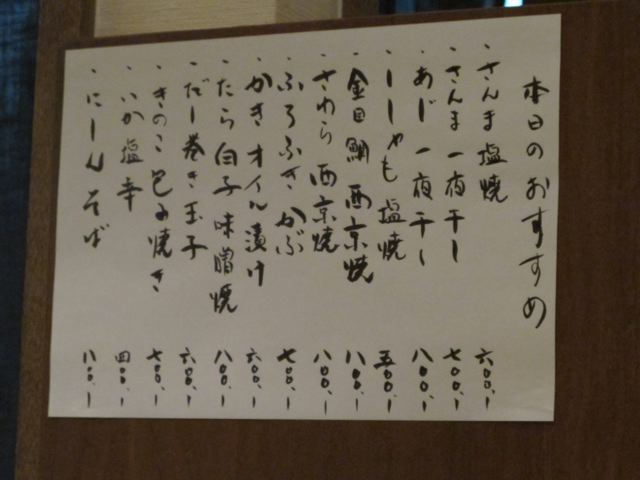 本日のおすすめ
・さんま塩焼 六〇〇、ー
・さんま一夜干し 七〇〇、ー
・あじ一夜干し 八〇〇、ー
・ししゃも塩焼 五〇〇、ー
・金目鯛西京焼 八〇〇、ー
・さわら西京焼 八〇〇、ー
・ふろふきかぶ 七〇〇、ー
・かきオイル漬け 六〇〇、ー
・たら白子味噌焼 八〇〇、ー
・だし巻き玉子 六〇〇、ー
・きのこ包み焼き 七〇〇、ー
・いか塩辛 四〇〇、ー
・にしんそば 八〇〇、ー